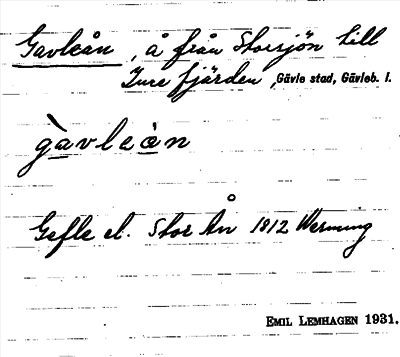 Gavleån, å från Storsjön till
Inre fjärden, Gävle stad, Gävleb. l.
gàvleån
Gefle el. Stor Ån 1812 Wermung
EMIL LEMHAGEN 1931.